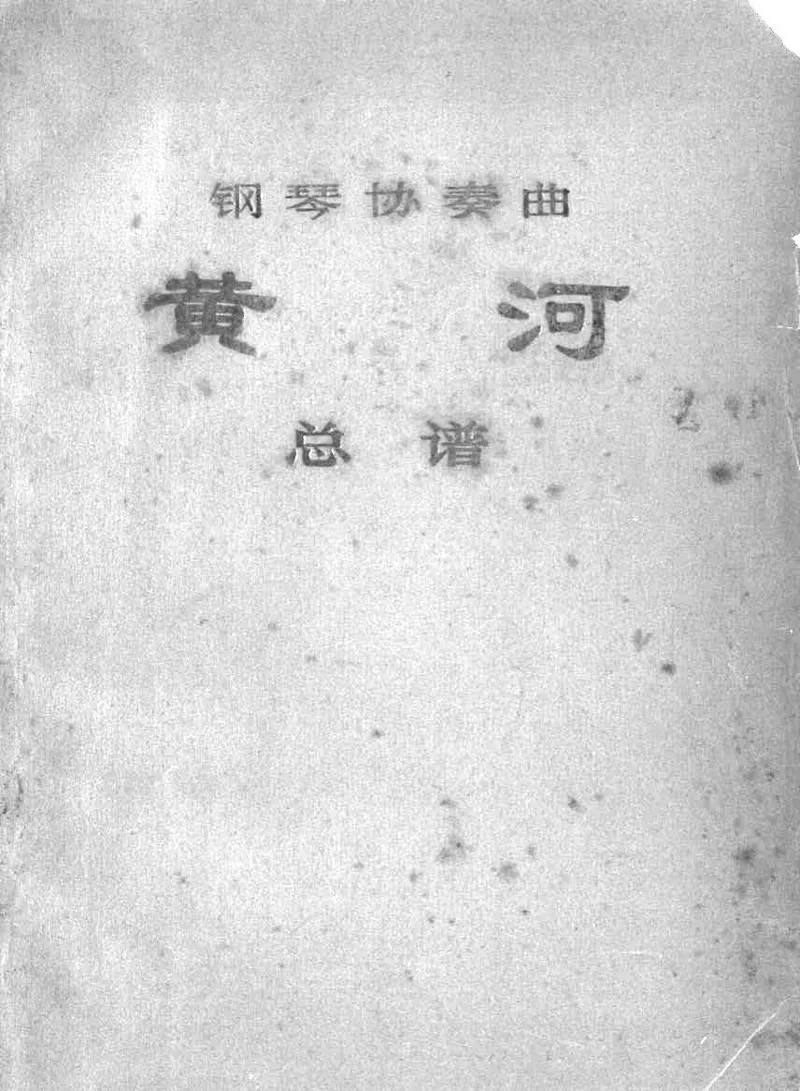 钢琴协奏曲
黄河
总谱